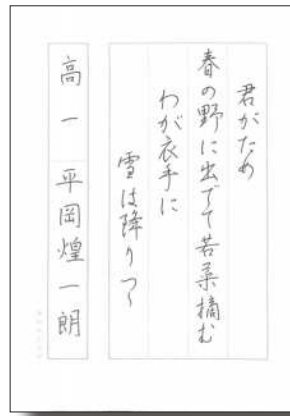 君がため
春の野に出でて若菜摘む
わが衣手に
雪は降りつつ
高一 平岡煌一朗